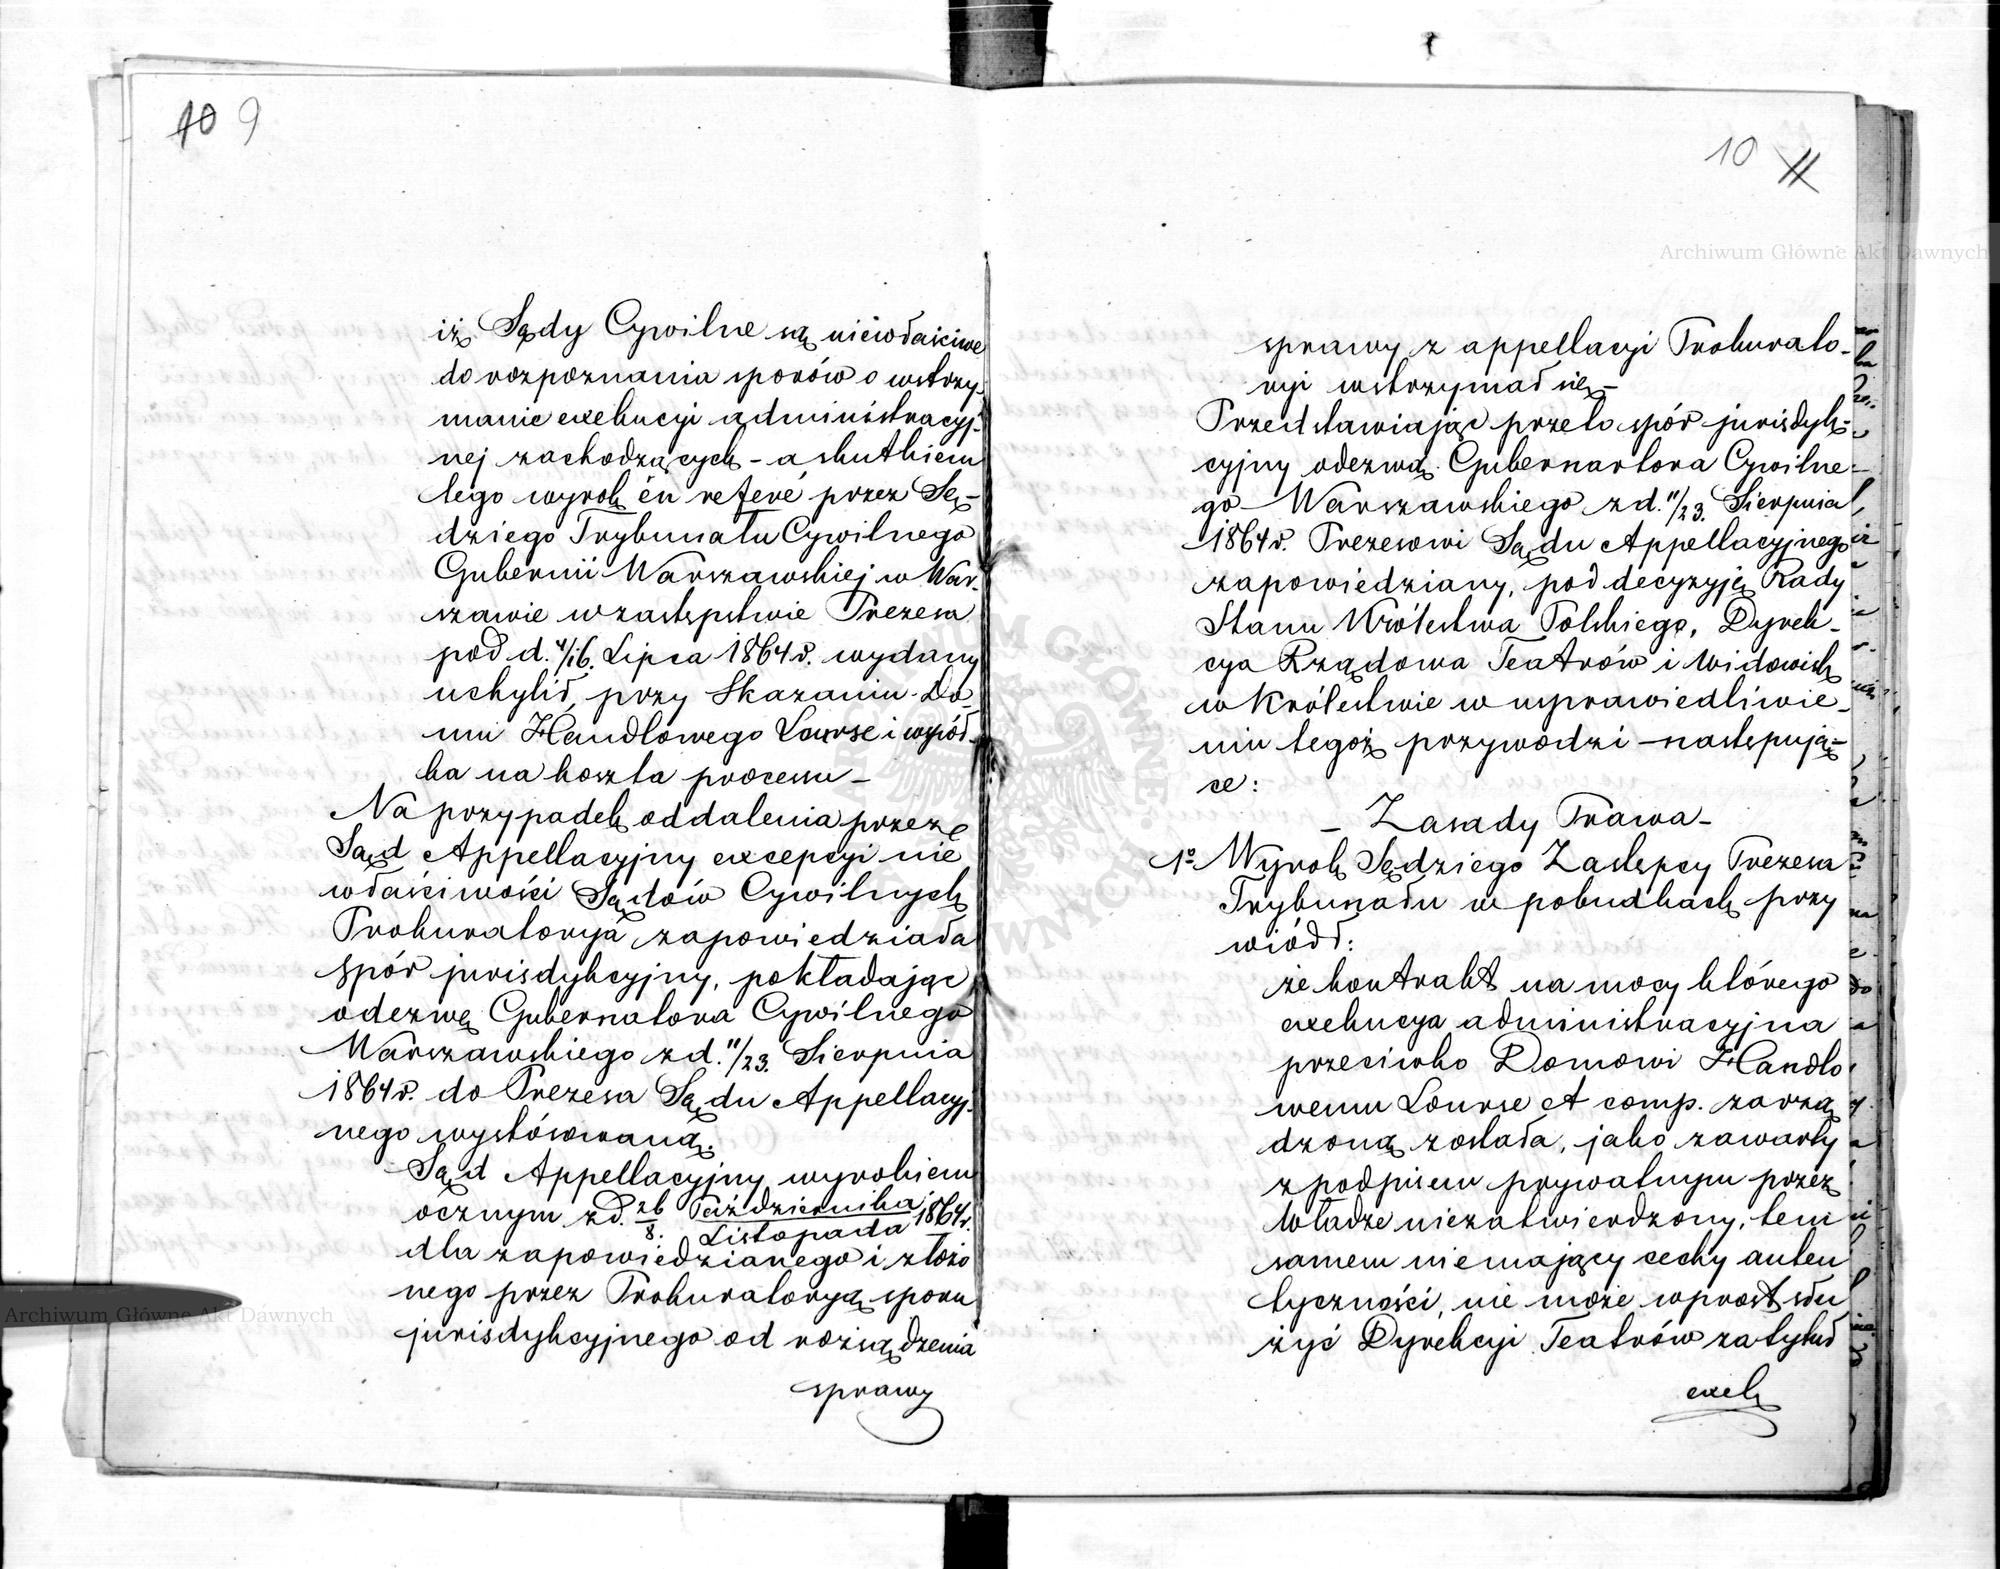 10 9
iż Sądy Cywilne są niewłaściwe
do rozpoznania sporów o wstrzy-
manie exekucyi administracyj-
nej zachodzących – a skutkiem
tego wyrok én referé przez Sę-
dziego Trybunału Cywilnego
Gubernii Warszawskiej w War-
szawie w zastępstwie Prezesa
pod d. 4/16. Lipca 1864 r. wydany
uchylił, przy Skazaniu Do-
mu Handlowego Lourse i wspól-
ka na koszta processu –
Na przypadek oddalenia przez
Sąd Appellacyjny excepcyi nie
właściwości Sądów Cywilnych
Prokuratorya zapowiedziała
spór jurisdykcyjny, pokładając
odezwę Gubernatora Cywilnego
Warszawskiego z d. 11/23. Sierpnia
1864 r. do Prezesa Sądu Appellacyj-
nego wystósowaną.
Sąd Appellacyjny wyrokiem
ocznym z d. 26 Października / 8. Listopada 1864 r.
dla zapowiedzianego i złożo
nego przez Prokuratoryą sporu
jurisdykcyjnego od rozsądzenia
sprawy
10 11
sprawy z appellacyi Prokurato-
ryi wstrzymał się –
Przedstawiając przeto spór jurisdyk-
cyjny odezwą Gubernartora Cywilne-
go Warszawskiego z d. 11/23. Sierpnia
1864 r. Prezesowi Sądu Appellacyjnego
zapowiedziany, pod decyzyję Rady
Stanu Królestwa Polskiego, Dyrek-
cya Rządowa Teatrów i Widowisk
w Królestwie w usprawiedliwie-
niu tegoż przywodzi – następują-
ce:
– Zasady Prawa –
1º Wyrok Sędziego Zastępcy Prezesa
Trybunału w pobudkach przy
wiódł:
że kontrakt na mocy którego
exekucya administracyjna
przeciwko Domowi Handlo
wemu Lourse et comp. zarzą
dzoną została, jako zawarty
z podpisem prywatnym przez
Władze niezatwierdzony, tem
samem niemający cechy auten
tyczności, nie może wprost słu
żyć Dyrekcyi Teatrów za tytuł
exek
Archiwum Główne Akt Dawnych
Archiwum Główne Akt Dawnych